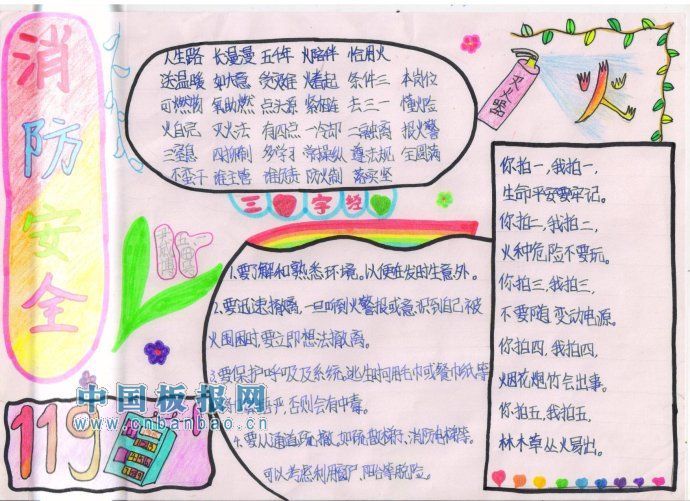 消防安全
人生路 长漫漫 五千年 火陪伴 恰用火
送温暖 如大意 受牵连 火着起 条件三 本岗位
可燃物 氧助燃 点火源 紧相连 去三一 懂火险
火自完 灭火法 有四点 一冷却 二融离 报火警
三窒息 四抑制 多学习 常操纵 遵法规 全圆满
不蛮干 谁主管 谁负责 防火制 落实坚
三字经
灭火器
火
1.要了解和熟悉环境。以便在发生意外。
2.要迅速撤离,一旦听到火警报或意识到自己被
火围困时,要立即想法撤离。
3.要保护呼吸及系统。逃生时用毛巾或餐巾纸等
严,否则会有中毒。
4.要从通道疏散。如疏散梯行、消防电梯等。
可以考虑利用窗户、阳台等脱险。
你拍一,我拍一,
生命平安要牢记。
你拍二,我拍二,
火种危险不要玩。
你拍三,我拍三,
不要随变动电源。
你拍四,我拍四,
烟花炮竹会出事。
你拍五,我拍五,
林木草丛火易出。
119
中国板报网
www.cnbanbao.cn